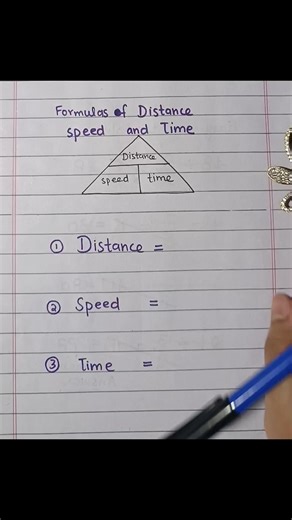 Formulas of Distance
speed and Time
Distance
speed time
① Distance =
② Speed =
③ Time =